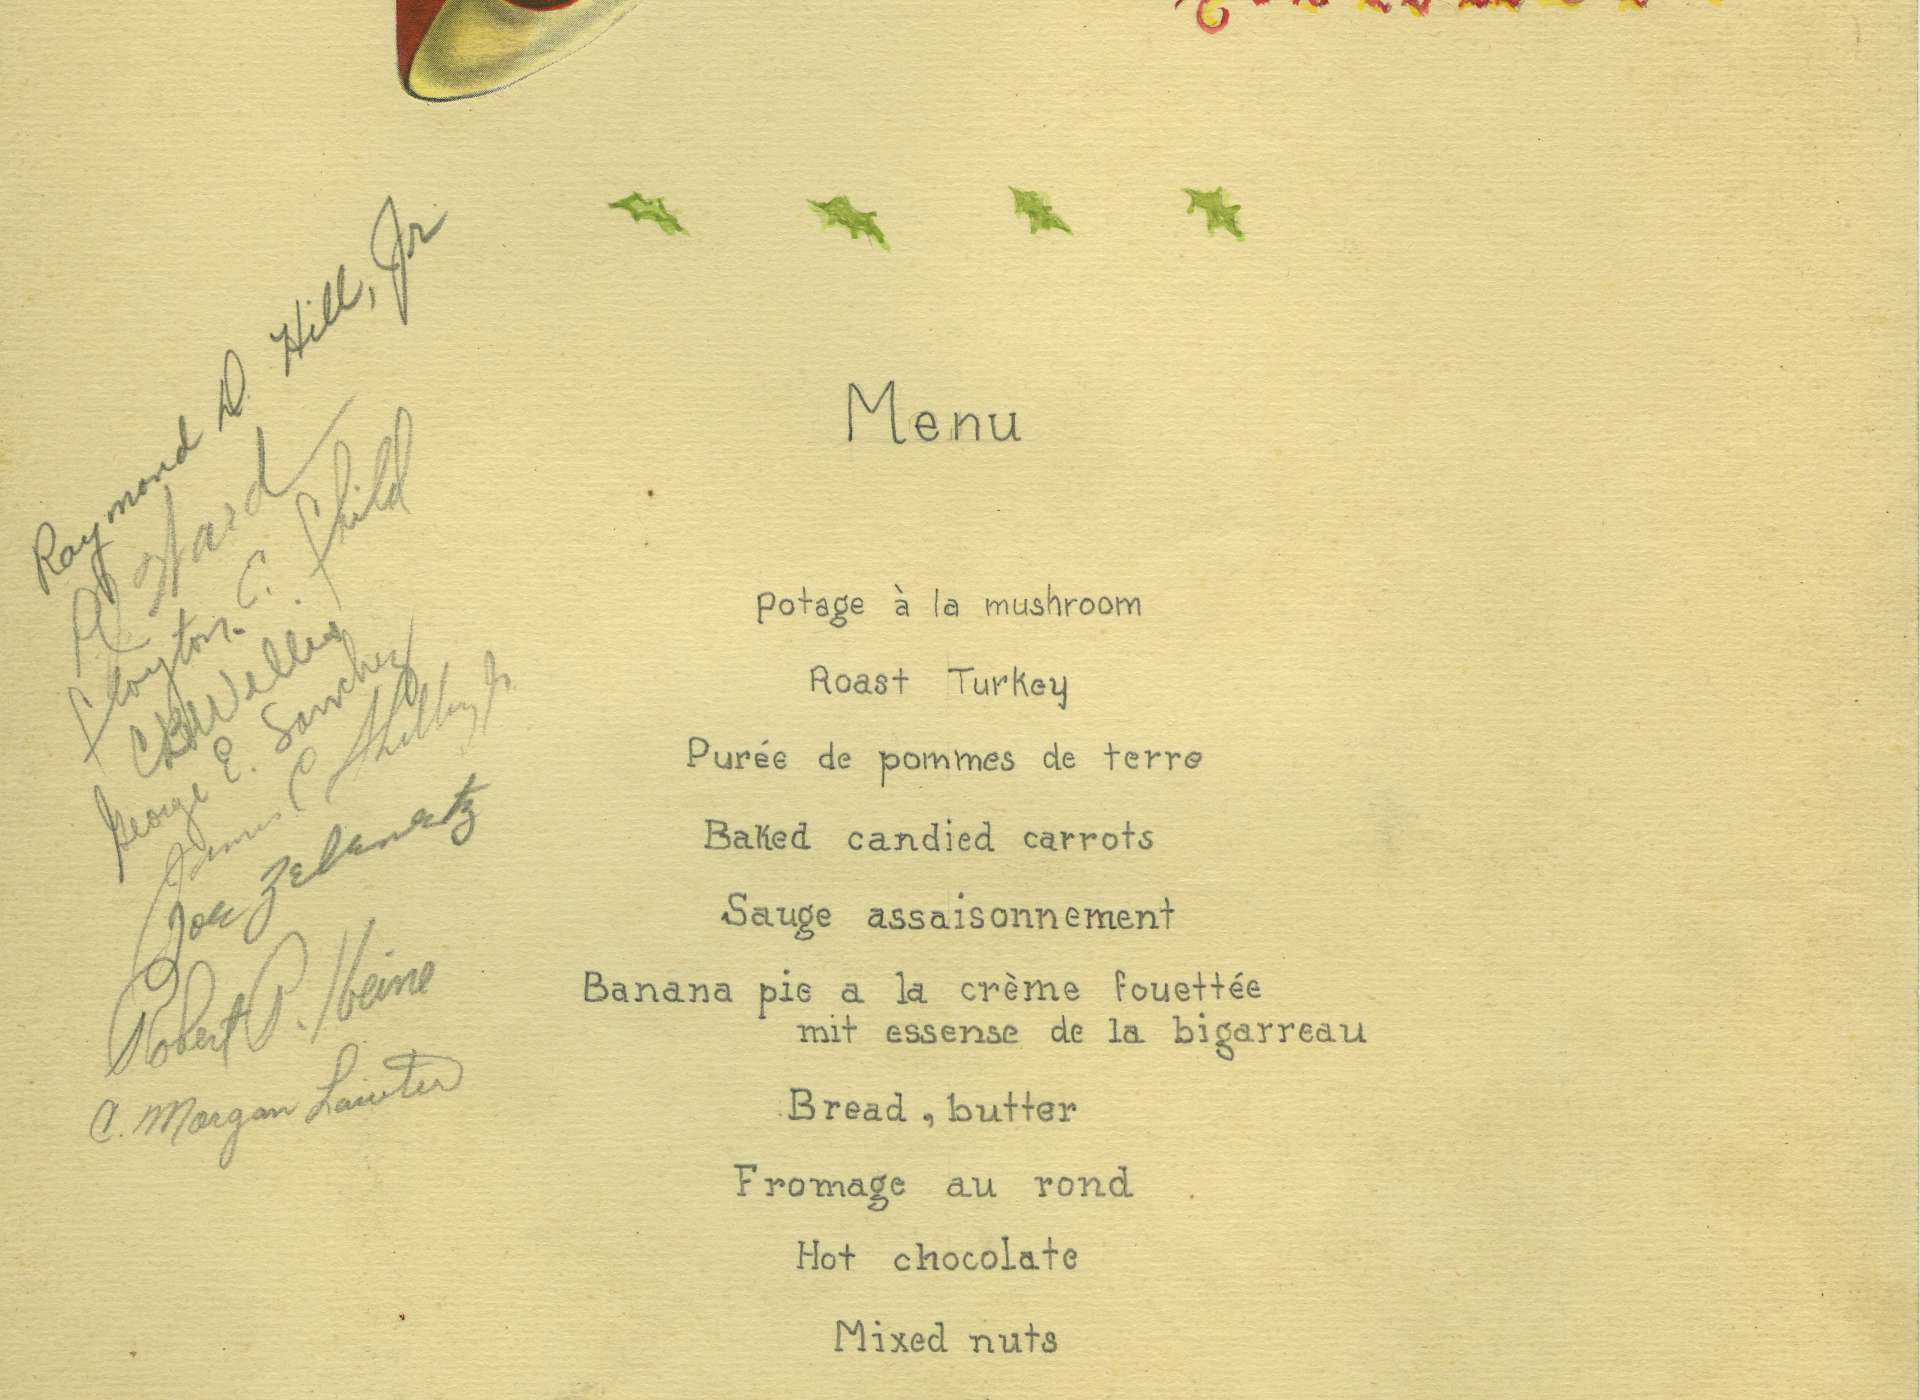 Menu
Potage à la mushroom
Roast Turkey
Purée de pommes de terre
Baked candied carrots
Sauge assaisonnement
Banana pie a la crème fouettée
mit essense de la bigarreau
Bread, butter
Fromage au rond
Hot chocolate
Mixed nuts
Raymond D. Hill, Jr
Ward
Clayton C. Child
George E. Sanchez
James C Shelby Jr.
Joe
Robert P. Heine
C. Morgan